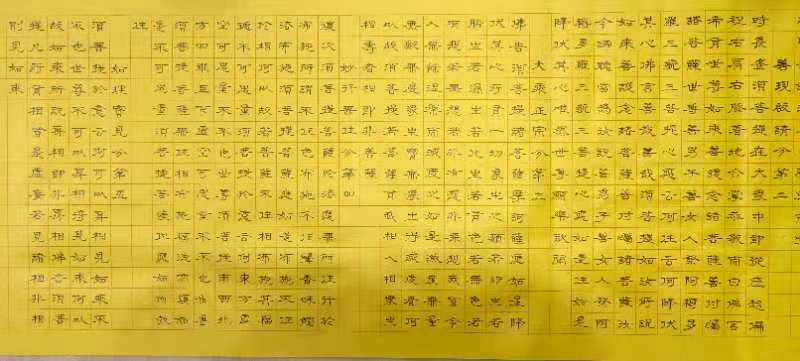 善現啟請分第二
時長老須菩提在大眾中即從座起偏
袒右肩右膝著地合掌恭敬而白佛言
希有世尊如來善護念諸菩薩善付囑
諸菩薩世尊善男子善女人發阿耨多
羅三藐三菩提心應云何住云何降伏
其心佛言善哉善哉須菩提如汝所說
如來善護念諸菩薩善付囑諸菩薩汝
今諦聽當為汝說善男子善女人發阿
耨多羅三藐三菩提心應如是住如是
降伏其心唯然世尊願樂欲聞
大乘正宗分第三
佛告須菩提諸菩薩摩訶薩應如是降
伏其心所有一切眾生之類若卵生若
胎生若濕生若化生若有色若無色若
有想若無想若非有想非無想我皆令
入無餘涅槃而滅度之如是滅度無量
無數無邊眾生實無眾生得滅度者何
以故須菩提若菩薩有我相人相眾生
相壽者相即非菩薩
妙行無住分第四
復次須菩提菩薩於法應無所住行於
布施所謂不住色布施不住聲香味觸
法布施須菩提菩薩應如是布施不住
於相何以故若菩薩不住相布施其福
德不可思量須菩提於意云何東方虛
空可思量不不也世尊須菩提南西北
方四維上下虛空可思量不不也世尊
須菩提菩薩無住相布施福德亦復如
是不可思量須菩提菩薩但應如所教
住
如理實見分第五
須菩提於意云何可以身相見如來不
不也世尊不可以身相得見如來何以
故如來所說身相即非身相佛告須菩
提凡所有相皆是虛妄若見諸相非相
則見如來